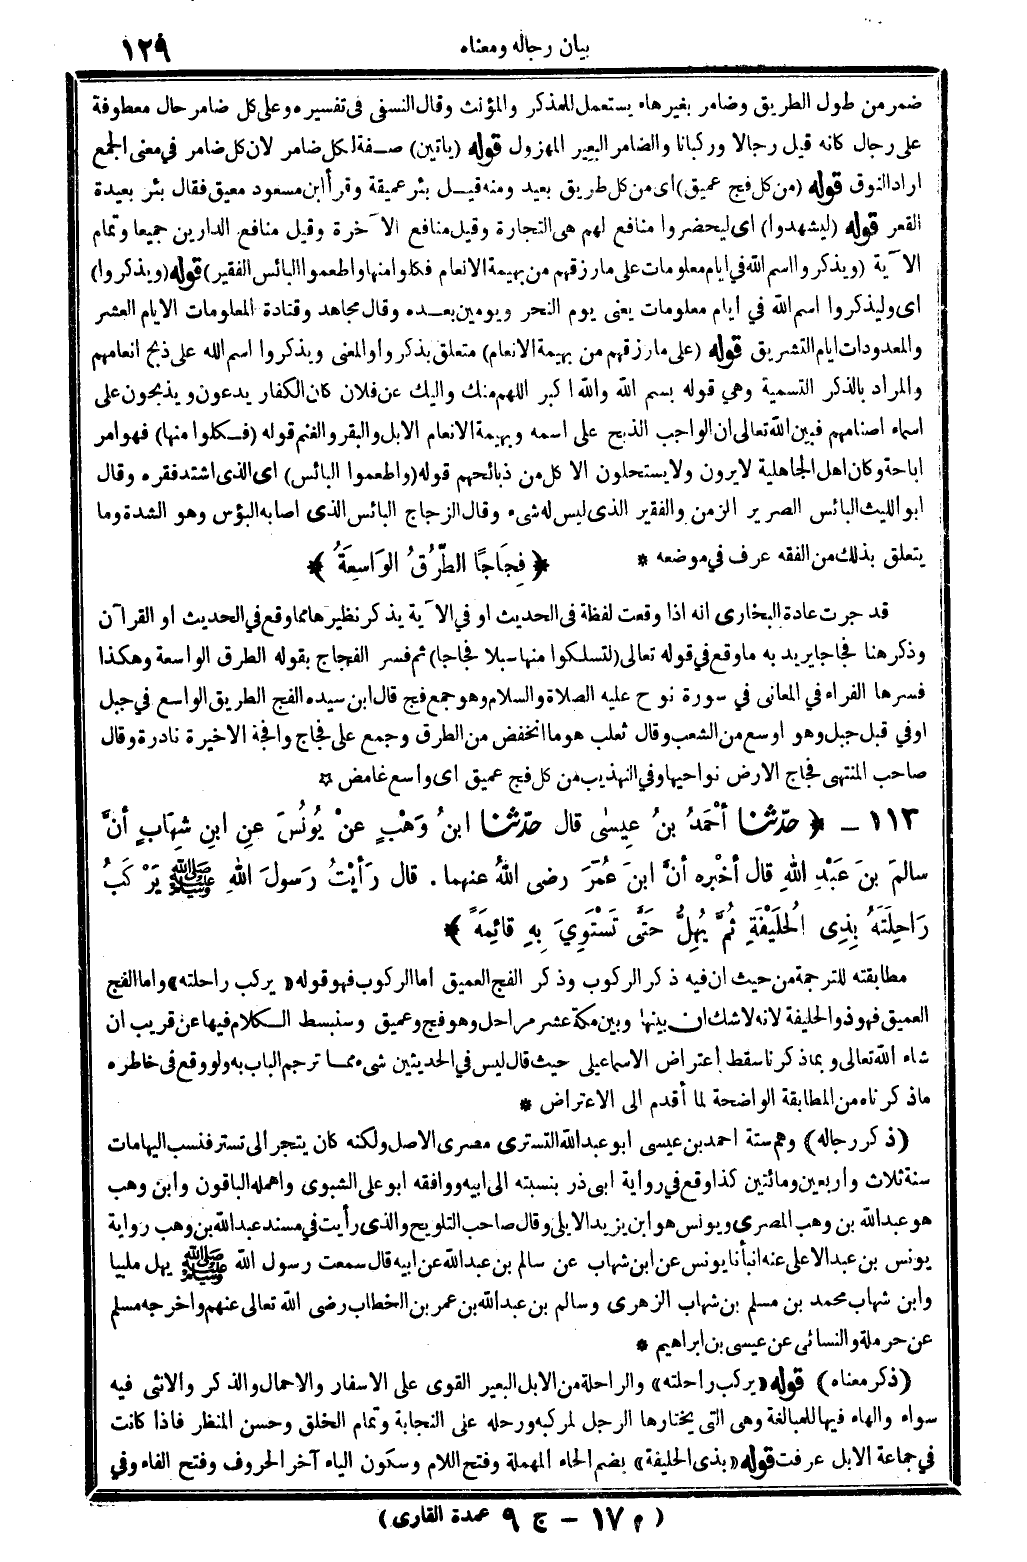 بيان رجاله ومعناه
١٢٩
ضمر من طول الطريق وضامر بغير هاء يستعمل للمذكر والمؤنث وقال النسفى فى تفسيره وعلى كل ضامر حال معطوفة
على رجال كانه قيل رجالا وركبانا والضامر البعير المهزول قوله (ياتين) صفة لكل ضامر لان كل ضامر في معنى الجمع
اراد النوق قوله (من كل فج عميق) اى من كل طريق بعيد ومنه قيل بئر عميقة وقرأ ابن مسعود معيق فقال بئر بعيدة
القعر قوله (ليشهدوا) اى ليحضروا منافع لهم هى التجارة وقيل منافع الآخرة وقيل منافع الدارين جميعا وتمام
الآية (ويذكروا اسم الله في ايام معلومات على ما رزقهم من بهيمة الانعام فكلوا منها واطعموا البائس الفقير) قوله (ويذكروا)
اى وليذكروا اسم الله في ايام معلومات يعنى يوم النحر ويومين بعده وقال مجاهد وقتادة المعلومات الايام العشر
والمعدودات ايام التشريق قوله (على ما رزقهم من بهيمة الانعام) متعلق بذكروا والمعنى ويذكروا اسم الله على ذبح انعامهم
والمراد بالذكر التسمية وهي قوله بسم الله والله اكبر اللهم منك واليك عن فلان كان الكفار يدعون ويذبحون على
اسماء اصنامهم فبين الله تعالى ان الواجب الذبح على اسمه وبهيمة الانعام الابل والبقر والغنم قوله (فكلوا منها) فهو امر
اباحة وكان اهل الجاهلية لا يرون ولا يستحلون الا كل من ذبائحهم قوله (واطعموا البائس) اى الذى اشتد فقره وقال
ابو الليث البائس الضرير الزمن والفقير الذى ليس له شىء وقال الزجاج البائس الذى اصابه البؤس وهو الشدة وما
يتعلق بذلك من الفقه عرف في موضعه * ﴿ فِجَاجًا الطُّرُقُ الوَاسِعَةُ ﴾
قد جرت عادة البخارى انه اذا وقعت لفظة فى الحديث او في الآية يذكر نظيرها مما وقع في الحديث او القرآن
وذكر هنا فجاجا يريد به ما وقع في قوله تعالى (لتسلكوا منها سبلا فجاجا) ثم فسر الفجاج بقوله الطرق الواسعة وهكذا
فسرها الفراء في المعانى في سورة نوح عليه الصلاة والسلام وهو جمع فج قال ابن سيده الفج الطريق الواسع في جبل
او في قبل جبل وهو اوسع من الشعب وقال ثعلب هو ما انخفض من الطرق وجمع على فجاج وافجة الاخيرة نادرة وقال
صاحب المنتهى فجاج الارض نواحيها وفي التهذيب من كل فج عميق اى واسع غامض ✩
١١٣ - ﴿ حدّثنا أَحْمَدُ بنُ عِيسٰى قال حدّثنا ابنُ وَهْبٍ عنْ يُونُسَ عنِ ابنِ شِهَابٍ أنَّ
سالمَ بنَ عَبْدِ اللهِ قال أخْبره أنَّ ابنَ عُمَرَ رضى اللهُ عنهما . قال رَأيْتُ رَسولَ اللهِ ﷺ يَرْكَبُ
رَاحِلَتَهُ بِذِى الحُلَيْفَةِ ثُمَّ يُهِلُّ حَتَّى تَسْتَوِيَ بِهِ قائِمَةً ﴾
مطابقته للترجمة من حيث ان فيه ذكر الركوب وذكر الفج العميق أما الركوب فهو قوله «يركب راحلته» واما الفج
العميق فهو ذو الحليفة لانه لا شك ان بينها وبين مكة عشر مراحل وهو فج وعميق وسنبسط الكلام فيها عن قريب ان
شاء الله تعالى وبما ذكرنا سقط اعتراض الاسماعيلى حيث قال ليس في الحديثين شىء مما ترجم الباب به ولو وقع فى خاطره
ما ذكرناه من المطابقة الواضحة لما أقدم الى الاعتراض *
(ذكر رجاله) وهم ستة احمد بن عيسى ابو عبدالله التسترى مصرى الاصل ولكنه كان يتجر الى تستر فنسب اليها مات
سنة ثلاث واربعين ومائتين كذا وقع في رواية ابى ذر بنسبته الى ابيه ووافقه ابو على الشبوى واهمله الباقون وابن وهب
هو عبدالله بن وهب المصرى ويونس هو ابن يزيد الايلى وقال صاحب التلويح والذى رأيت في مسند عبدالله بن وهب رواية
يونس بن عبد الاعلى عنه انبأنا يونس عن ابن شهاب عن سالم بن عبدالله عن ابيه قال سمعت رسول الله ﷺ يهل ملبيا
وابن شهاب محمد بن مسلم بن شهاب الزهرى وسالم بن عبدالله بن عمر بن الخطاب رضى الله تعالى عنهم واخرجه مسلم
عن حرملة والنسائى عن عيسى بن ابراهيم *
(ذكر معناه) قوله «يركب راحلته» والراحلة من الابل البعير القوى على الاسفار والاحمال والذكر والانثى فيه
سواء والهاء فيها للمبالغة وهى التى يختارها الرجل لمركبه ورحله على النجابة وتمام الخلق وحسن المنظر فاذا كانت
في جماعة الابل عرفت قوله «بذى الحليفة» بضم الحاء المهملة وفتح اللام وسكون الياء آخر الحروف وفتح الفاء وفي
( م ١٧ - ج ٩ عمدة القارى )